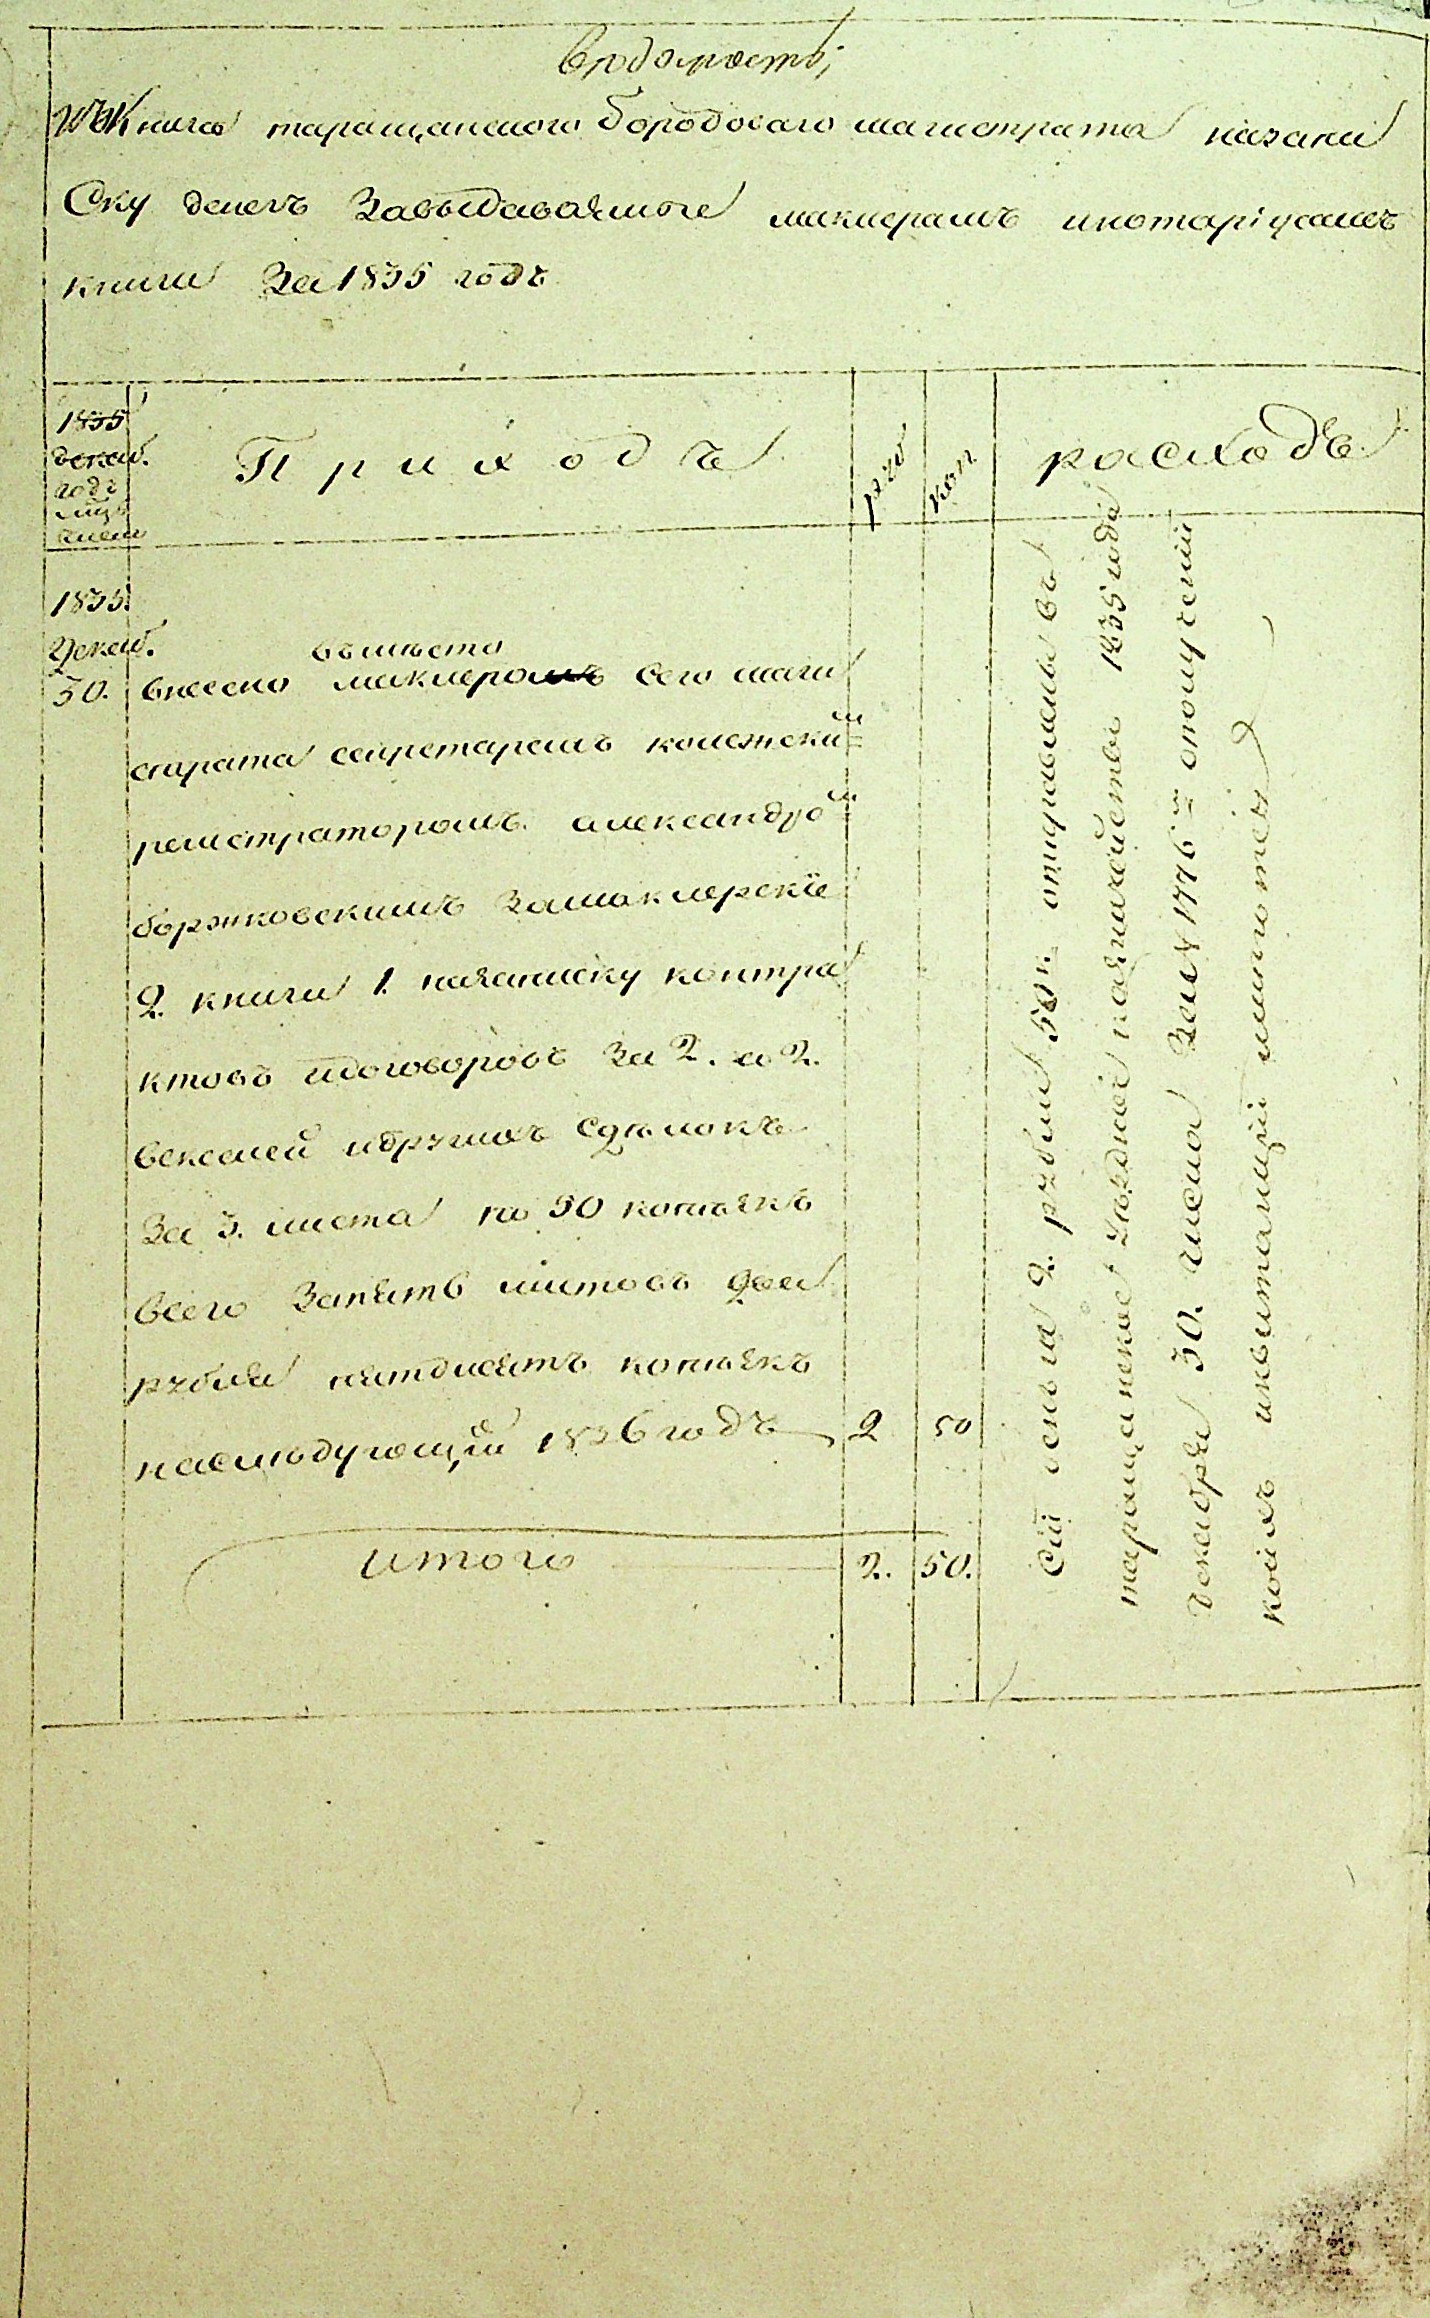 Ведомость,
Книга таращанского городоваго магистрата назапи
Ску денегъ Завыдаваемые маклерамъ инотаріусамъ
книги За 1835 годъ
1835
декаб.
годъ
мцъ
Приходъ
руб
коп
расходъ
1835.
Декаб.
30.
вместо
внесено маклеромъ сего маги
страта секретаремъ колежским
регистраторомъ александром
боржковскимъ Замаклерскіе
2 книги 1. назаписку контра
ктовъ идоговоровъ За 2. а 2.
векселей идругихъ Сделокъ
За 3. листа по 50 копѣекъ
всего Запять листовъ два
рубли пятдесятъ копѣекъ
наслѣдующій 1836 годъ 2 50
итого 2. 50.
Сіи деньги 2. рубли 50 к. отправлены въ
таращанское уѣздное казначейство 1835 года
декабря 30. числа За № 1776 ополученіи
коихъ иквитанціи